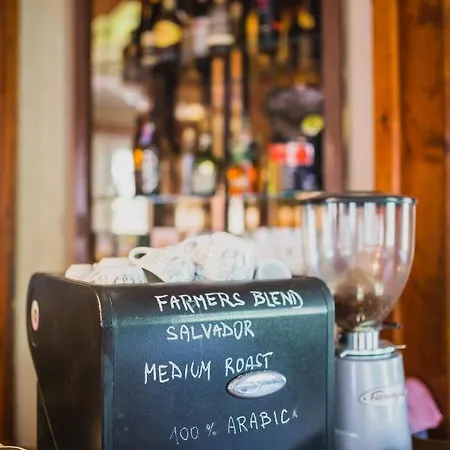 FARMERS BLEND
SALVADOR
MEDIUM ROAST
100% ARABICA